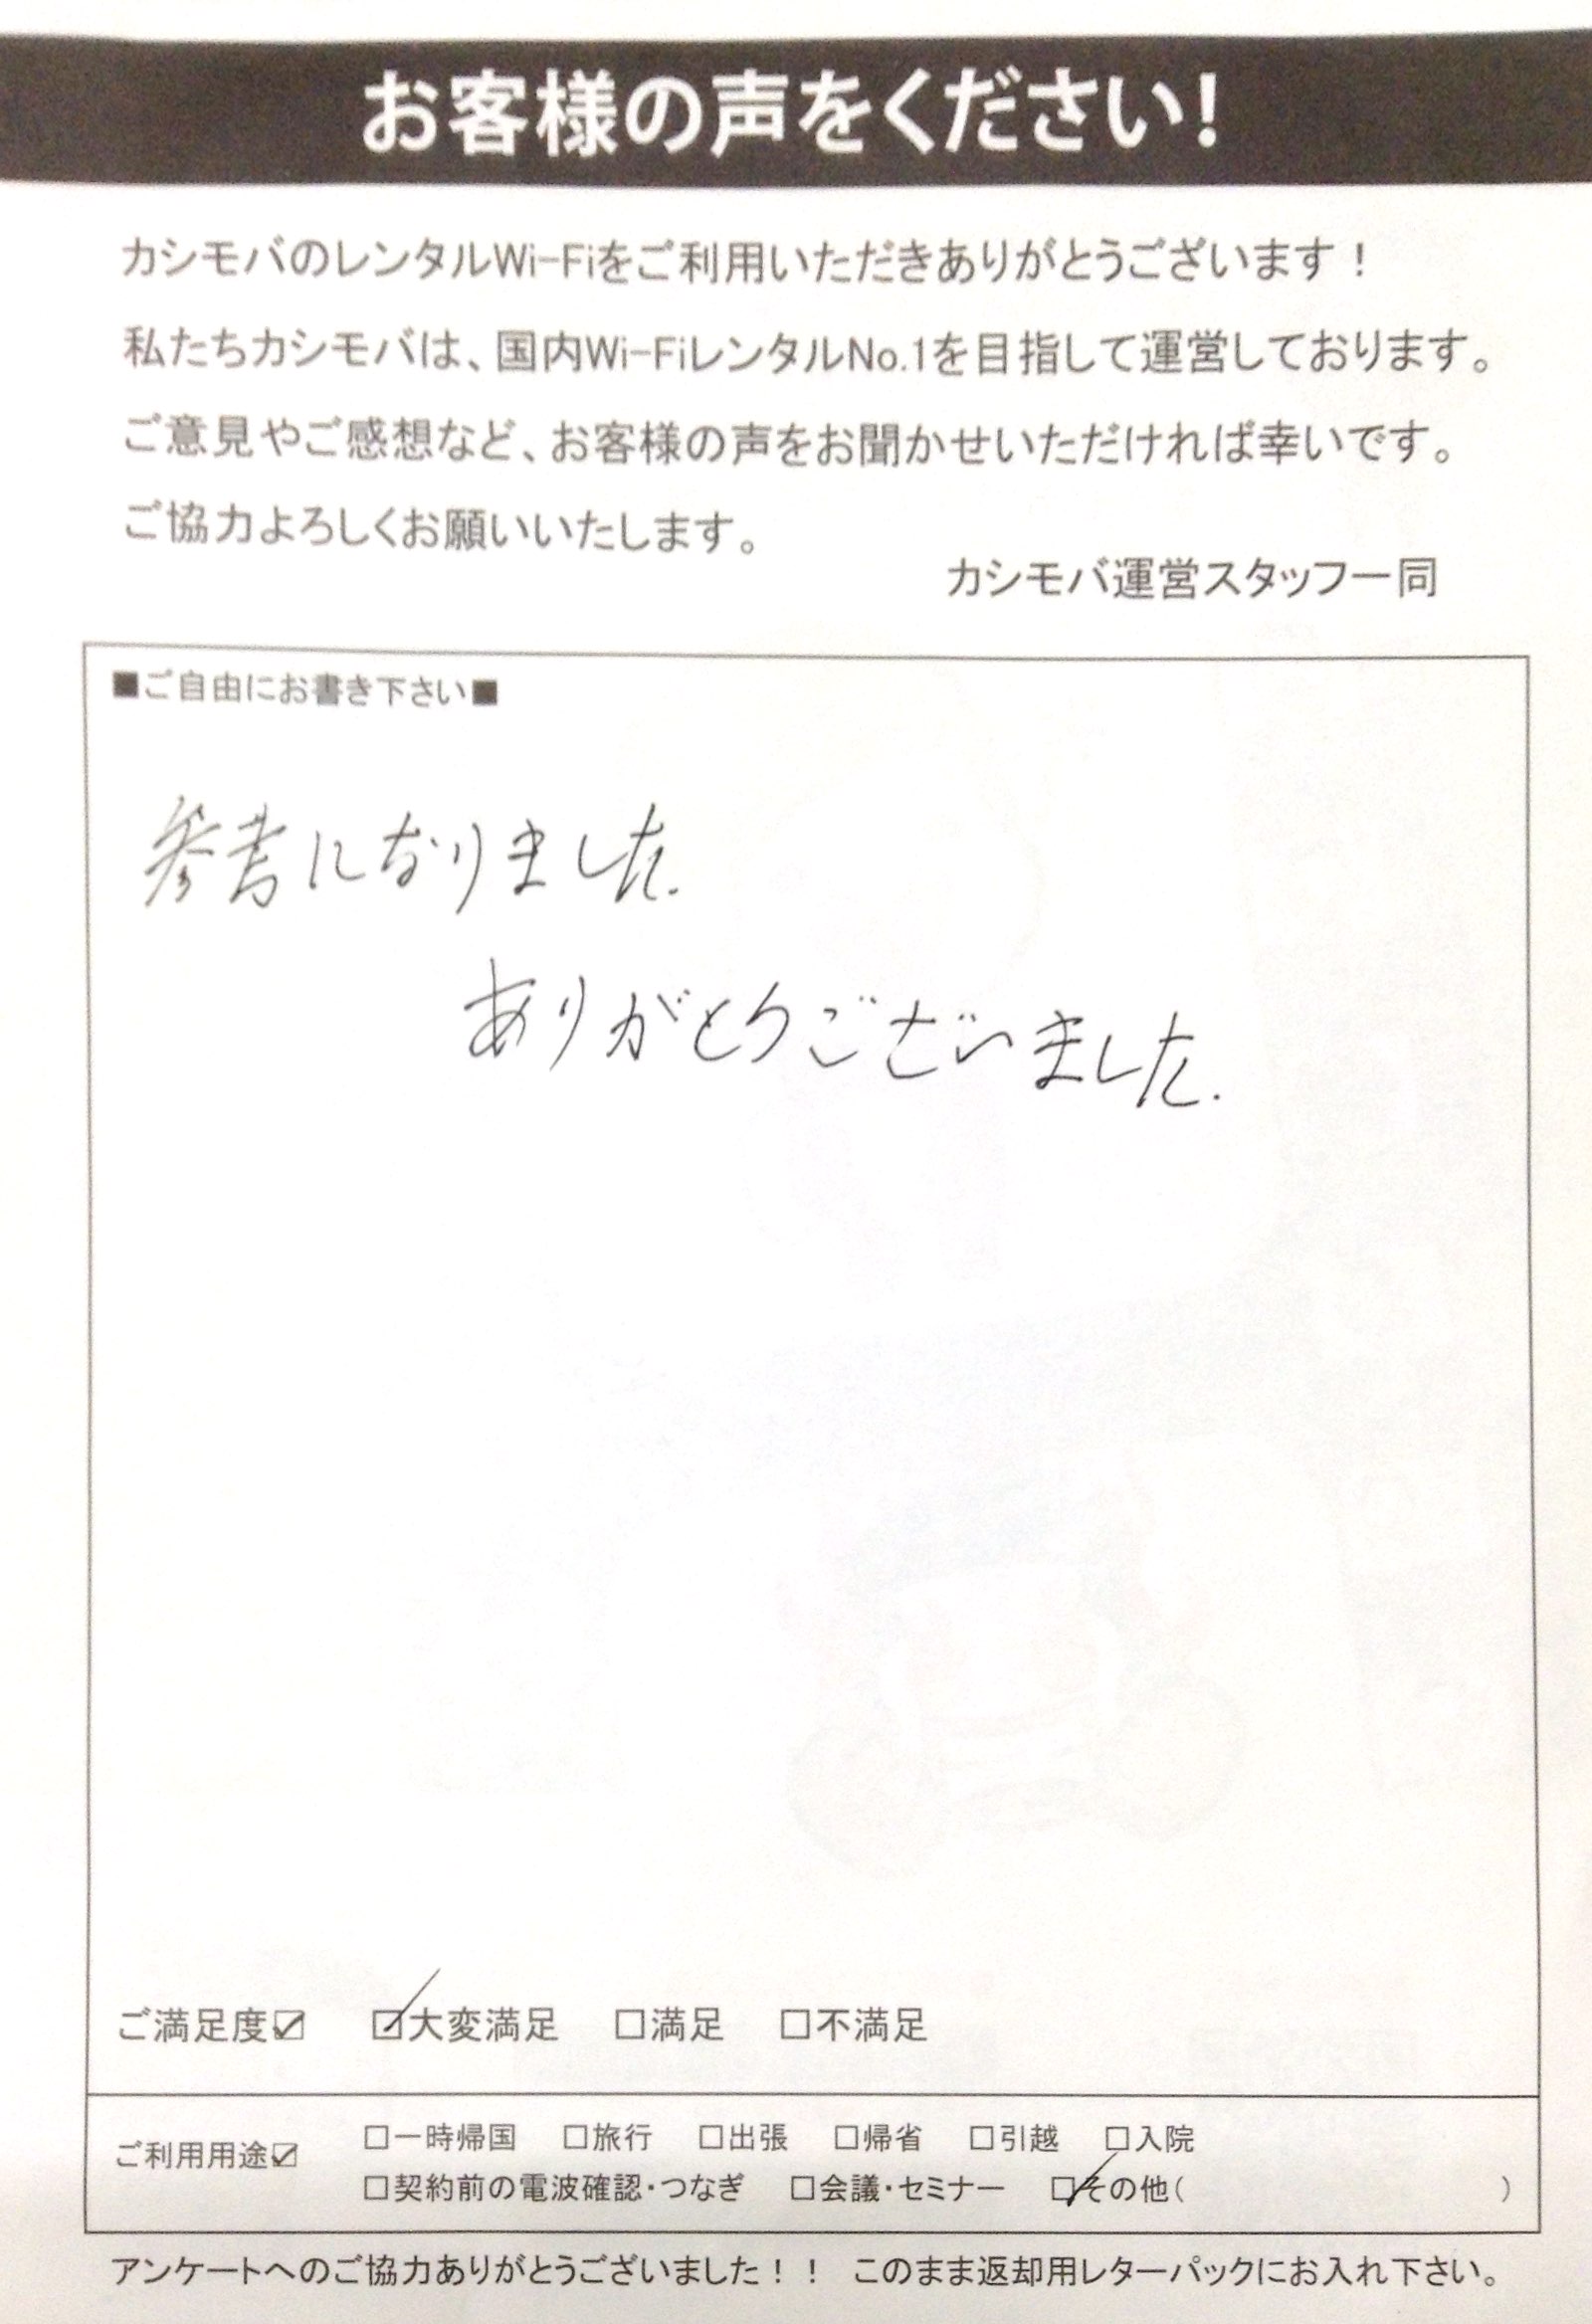 お客様の声をください!
カシモバのレンタルWi-Fiをご利用いただきありがとうございます!
私たちカシモバは、国内Wi-FiレンタルNo.1を目指して運営しております。
ご意見やご感想など、お客様の声をお聞かせいただければ幸いです。
ご協力よろしくお願いいたします。
カシモバ運営スタッフ一同
■ご自由にお書き下さい■
参考になりました.
ありがとうございました.
ご満足度☑ ☑大変満足 □満足 □不満足
ご利用用途☑ □一時帰国 □旅行 □出張 □帰省 □引越 □入院
□契約前の電波確認・つなぎ □会議・セミナー ☑その他( )
アンケートへのご協力ありがとうございました!! このまま返却用レターパックにお入れ下さい。